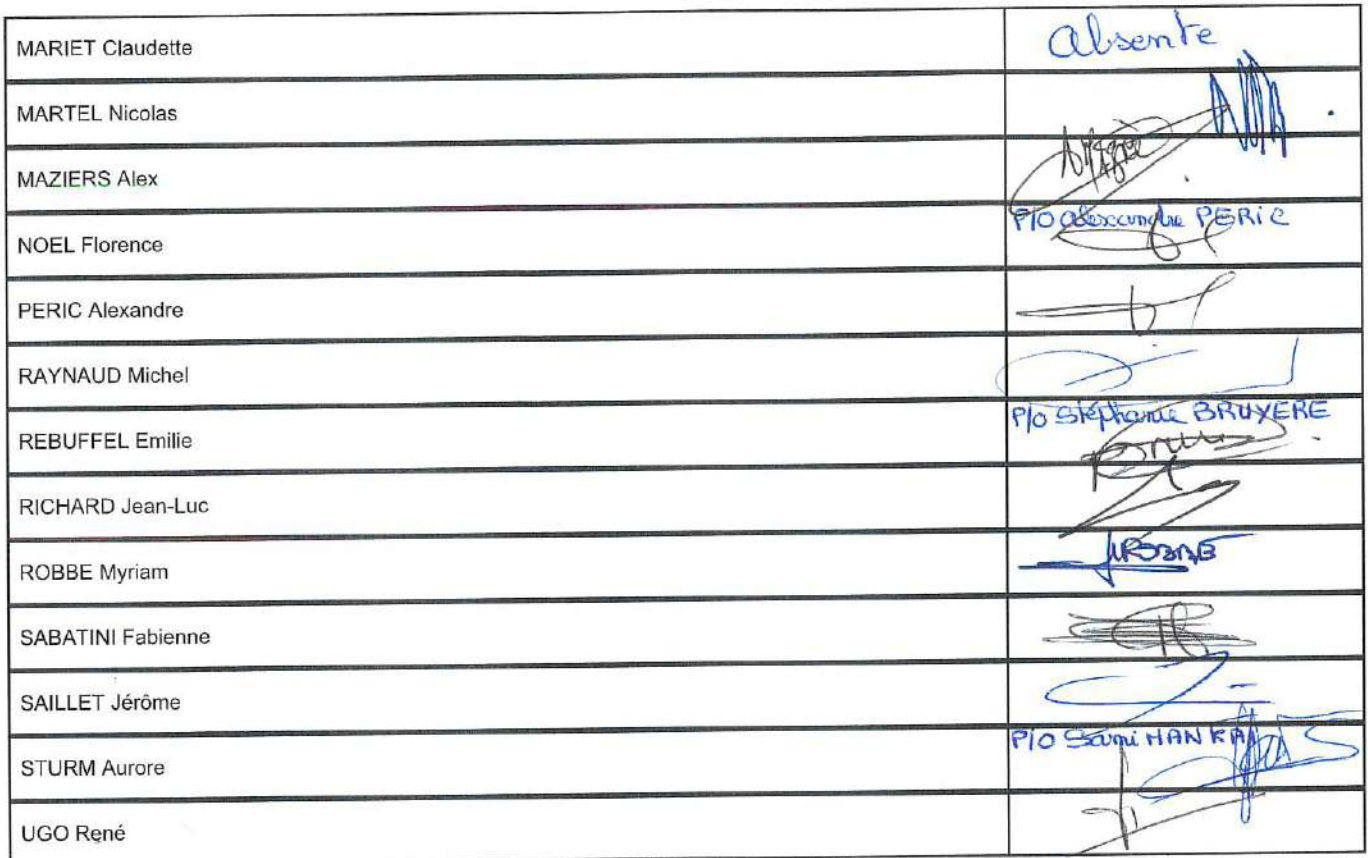 MARIET Claudette Absente
MARTEL Nicolas
MAZIERS Alex
NOEL Florence P/O Alexandre PERIC
PERIC Alexandre
RAYNAUD Michel
REBUFFEL Emilie P/o Stéphanie BRUYERE
RICHARD Jean-Luc
ROBBE Myriam MROBBE
SABATINI Fabienne
SAILLET Jérôme
STURM Aurore P/O Sami
UGO René